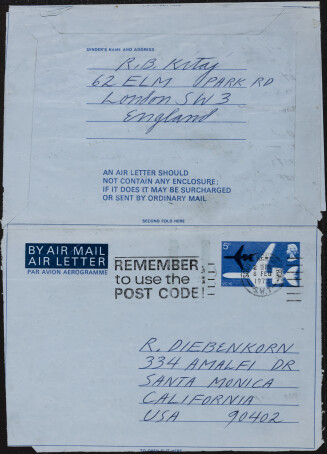 SENDER'S NAME AND ADDRESS
R.B. Kitaj
62 ELM PARK RD
London SW3
England
AN AIR LETTER SHOULD
NOT CONTAIN ANY ENCLOSURE;
IF IT DOES IT MAY BE SURCHARGED
OR SENT BY ORDINARY MAIL
SECOND FOLD HERE
BY AIR MAIL
AIR LETTER
PAR AVION AEROGRAMME
REMEMBER
to use the
POST CODE!
5p
FEB
197
S.W.
R. DIEBENKORN
334 AMALFI DR
SANTA MONICA
CALIFORNIA
USA 90402